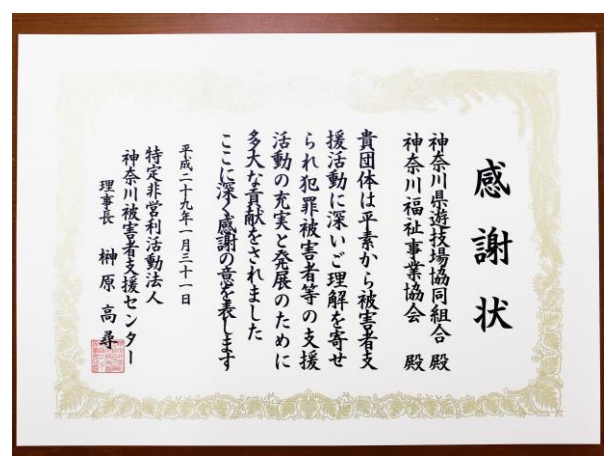 感謝状
神奈川県遊技場協同組合 殿
神奈川福祉事業協会 殿
貴団体は平素から被害者支
援活動に深いご理解を寄せ
られ犯罪被害者等の支援
活動の充実と発展のために
多大な貢献をされました
ここに深く感謝の意を表します
平成二十九年一月三十一日
特定非営利活動法人
神奈川被害者支援センター
理事長 榊原高尋